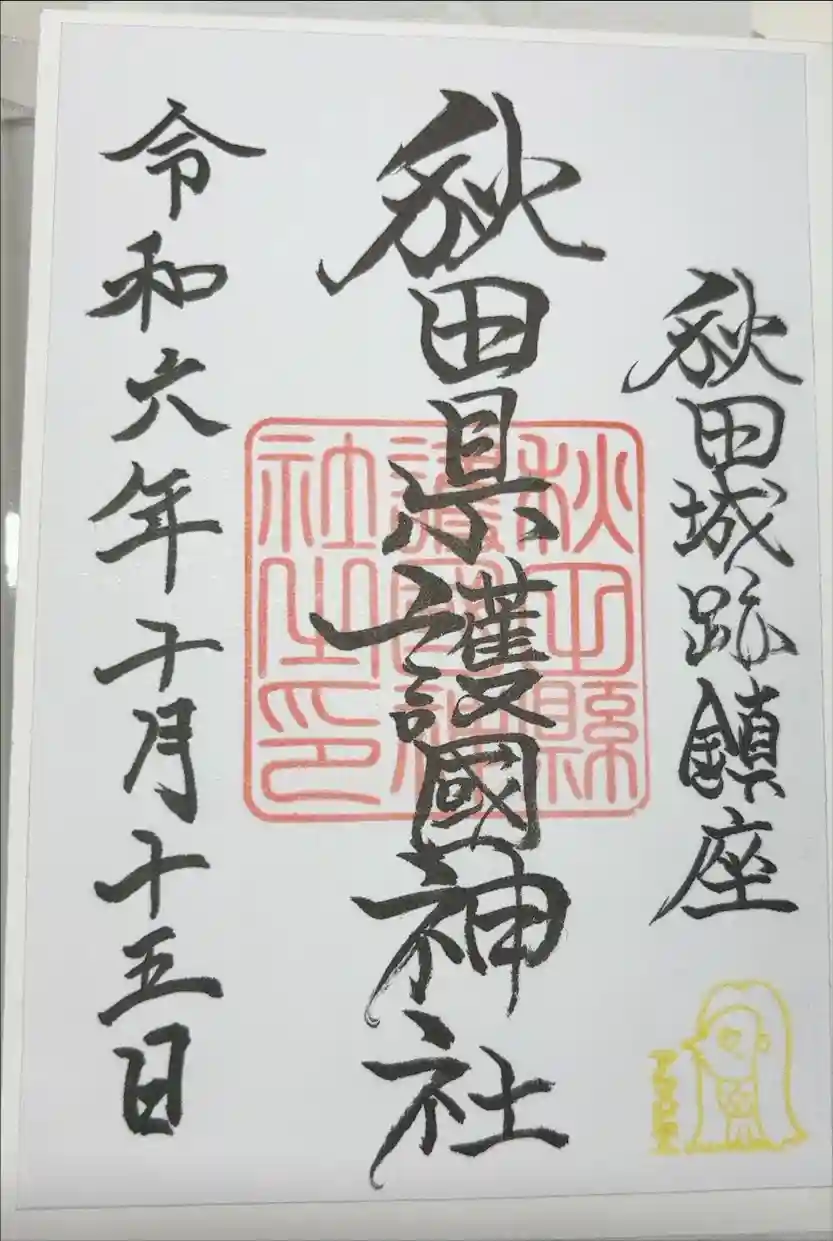 秋田城跡鎮座
秋田県護國神社
秋田縣
護國神
社之印
令和六年十月十五日